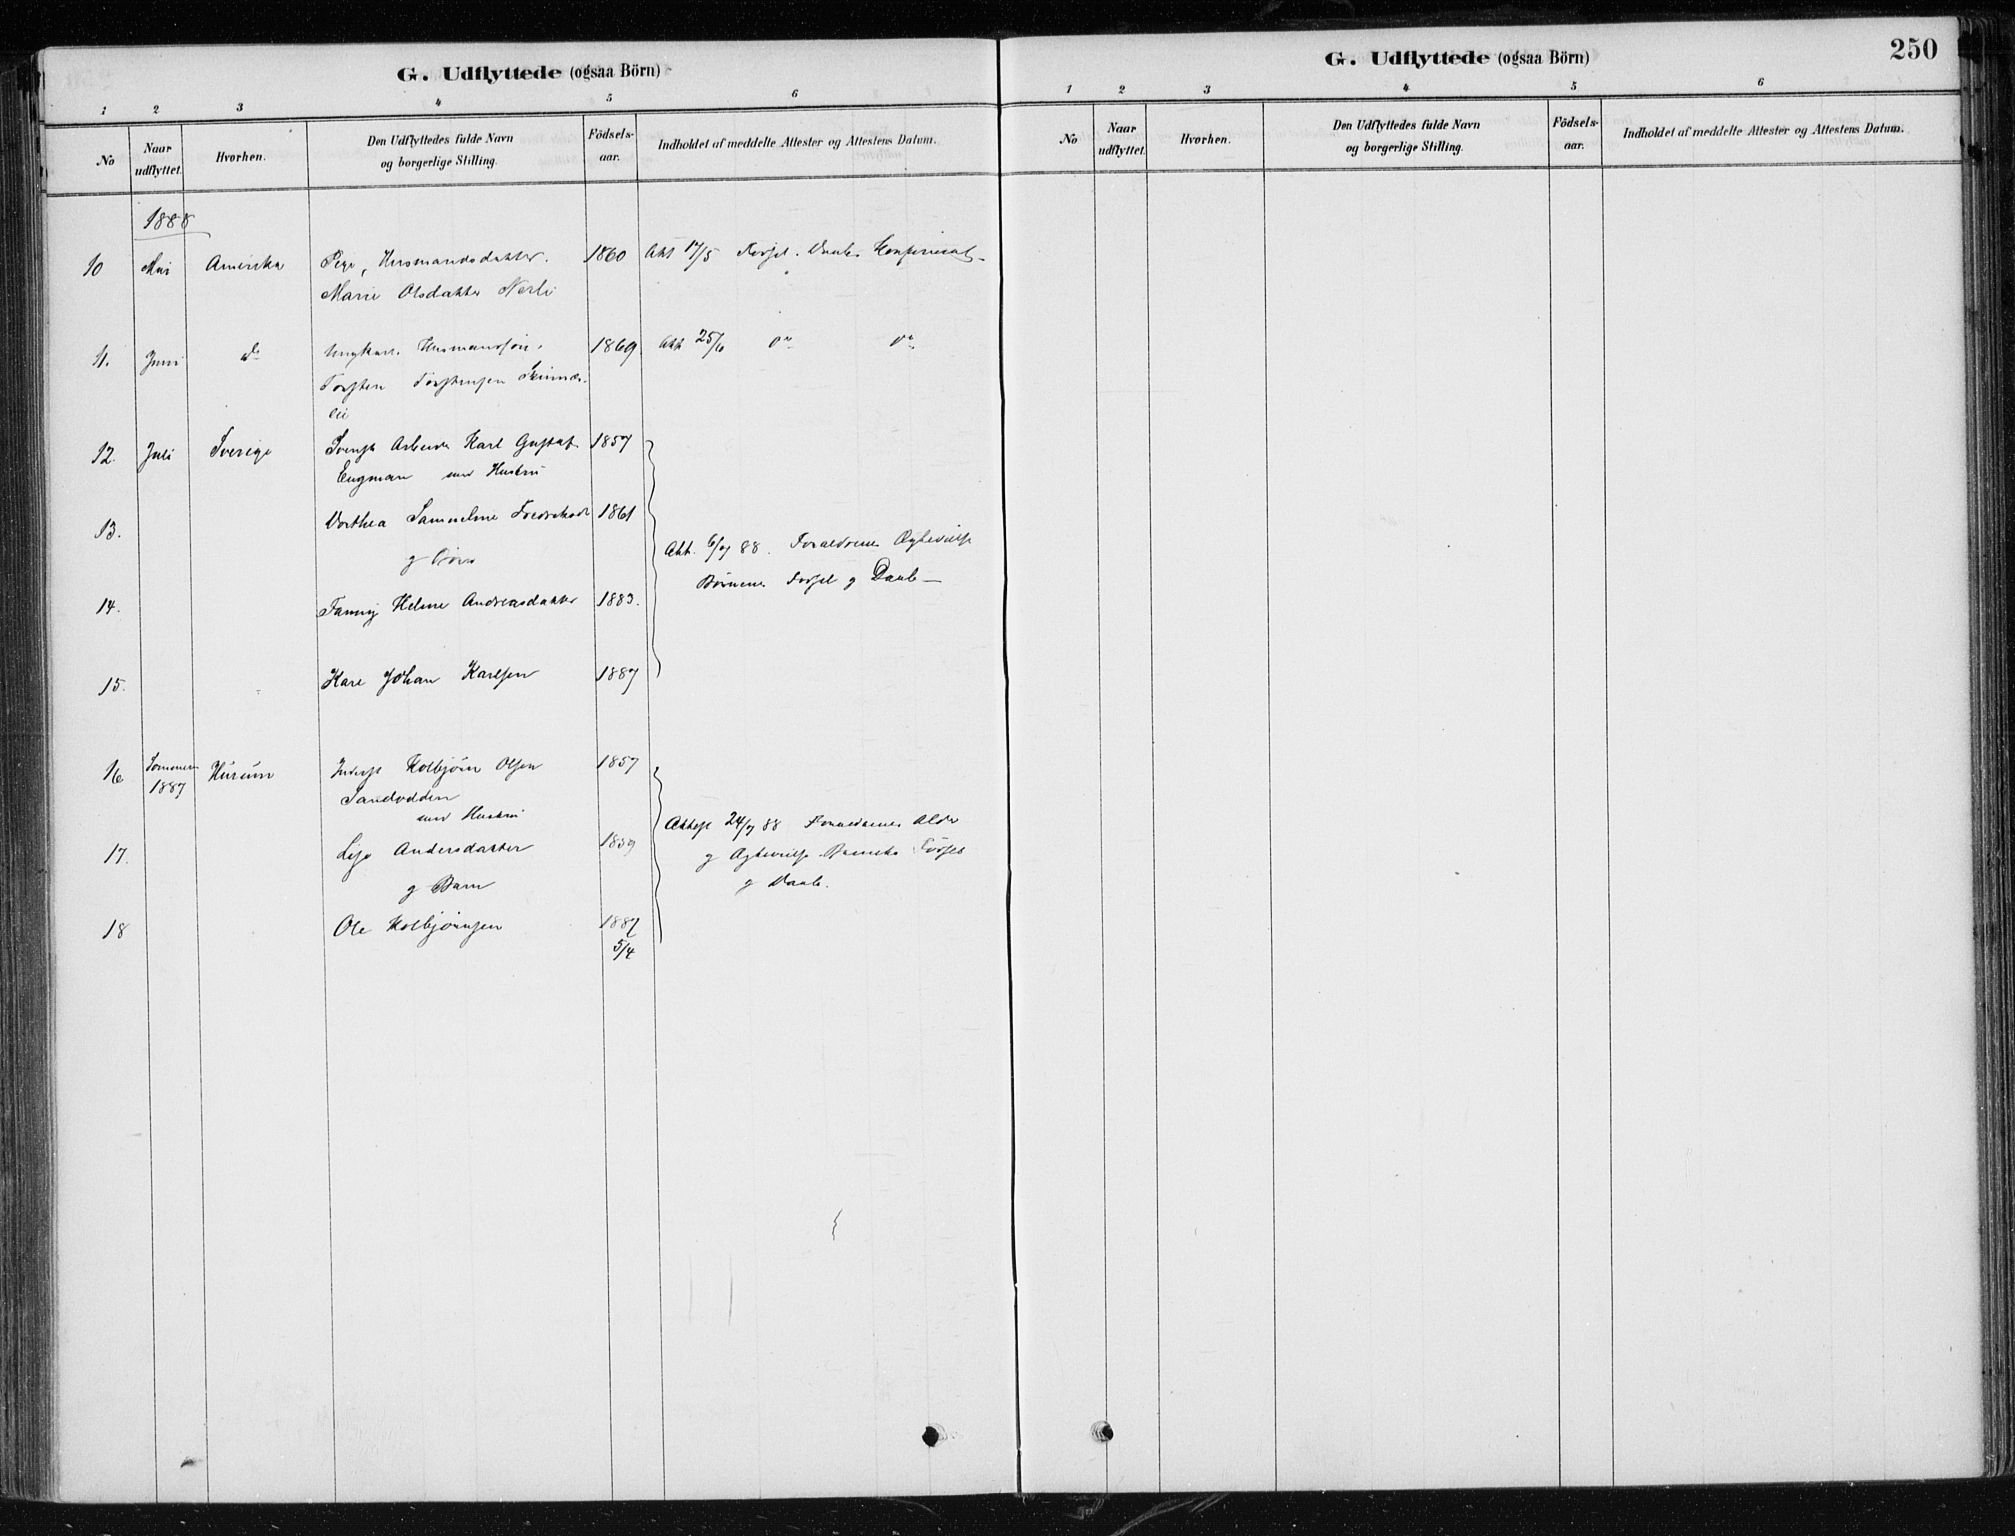 G. Udflyttede (ogsaa Börn)
1 2 3 4 5 6
No
Naar udflyttet.
Hvorhen.
Den Udflyttedes fulde Navn og borgerlige Stilling.
Födsels-aar.
Indholdet af meddelte Attester og Attestens Datum.
1888
10 Mai Amerika Pige, Husmandsdatter. 1860 Att 17/5 Fødsel. Daab. Konfirmat
Marie Olsdatter Nerli
11. Juni do Ungkarl. Husmandsøn. 1869 Att 25/6 do do
Torsten Torstensen
12. Juli Sverige Svensk Arbeider Karl Gustaf 1857
Engman med Hustru
13. Dorthea Samueline 1861
g Børn
Att. 6/7 88. Forældrenes Ægtevielse
Børnenes Fødsel g Daab
14. Fanny Helene Andreasdatter 1883.
15. Karl Johan Karlsen 1887
16 Sommeren 1887 Hurum Inderst Kolbjørn Olsen 1857
Sandodden
med Hustru
Attest 24/7 88 Forældrenes Alder
17. Lise Andersdatter 1859
g Ægtevielse Barnets Fødsel
g Barn
g Daab.
18 Ole Kolbjørnsen 1887
5/4
G. Udflyttede (ogsaa Börn)
250
1 2 3 4 5 6
No
Naar udflyttet.
Hvorhen.
Den Udflyttedes fulde Navn og borgerlige Stilling.
Födsels-aar.
Indholdet af meddelte Attester og Attestens Datum.